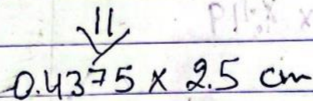 0.4375 x 2.5 cm